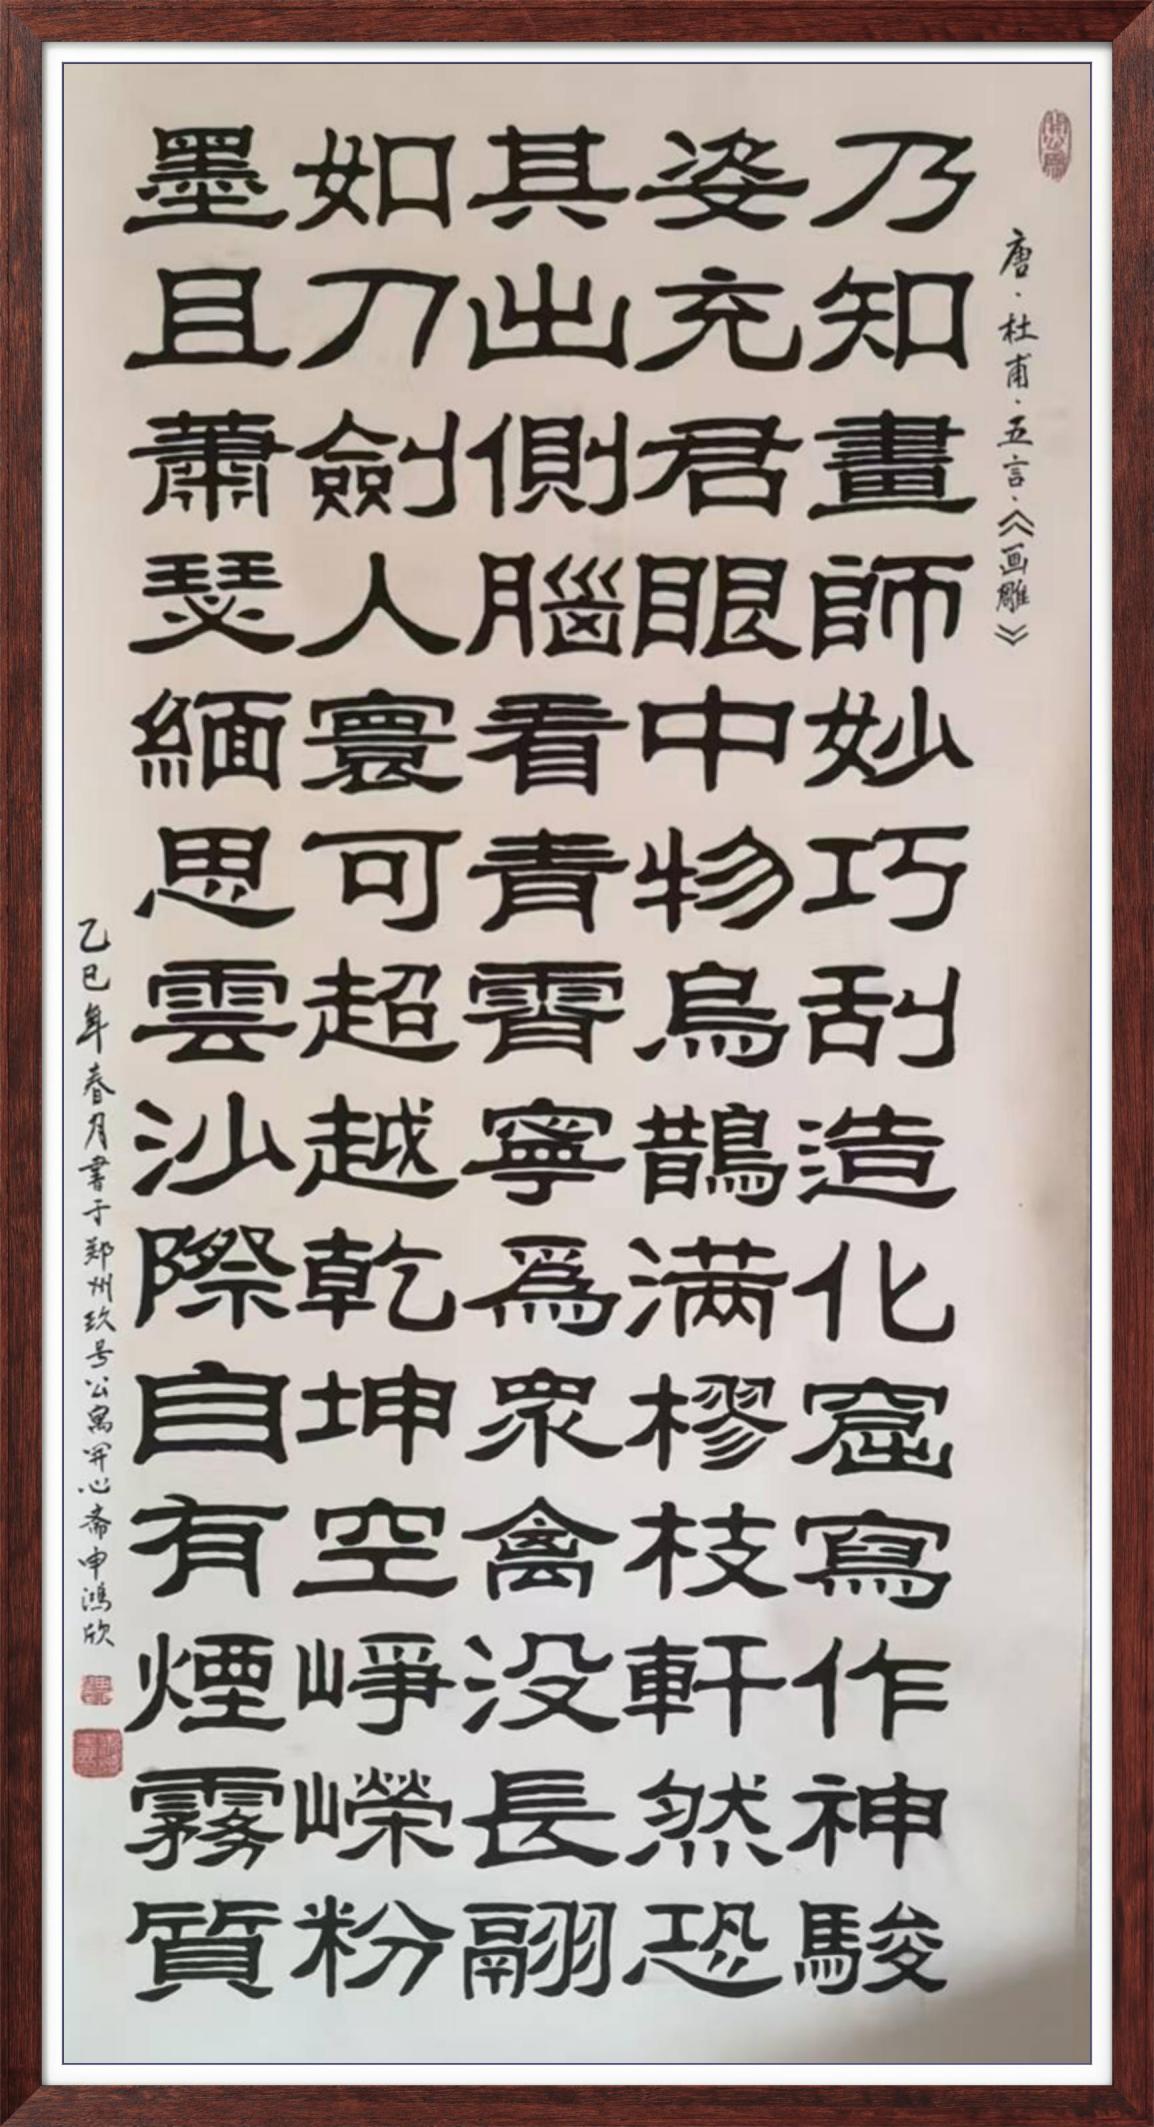 唐·杜甫·五言·《画雕》
乃知畫師妙巧刮造化窟寫作神駿
姿充君眼中物烏鵲满樛枝軒然恐
其出側腦看青霄寧爲眾禽没長翮
如刀劍人寰可超越乾坤空崢嶸粉
墨且蕭瑟緬思雲沙際自有煙霧質
乙巳年春月書于郑州玖号公寓开心斋申鸿欣